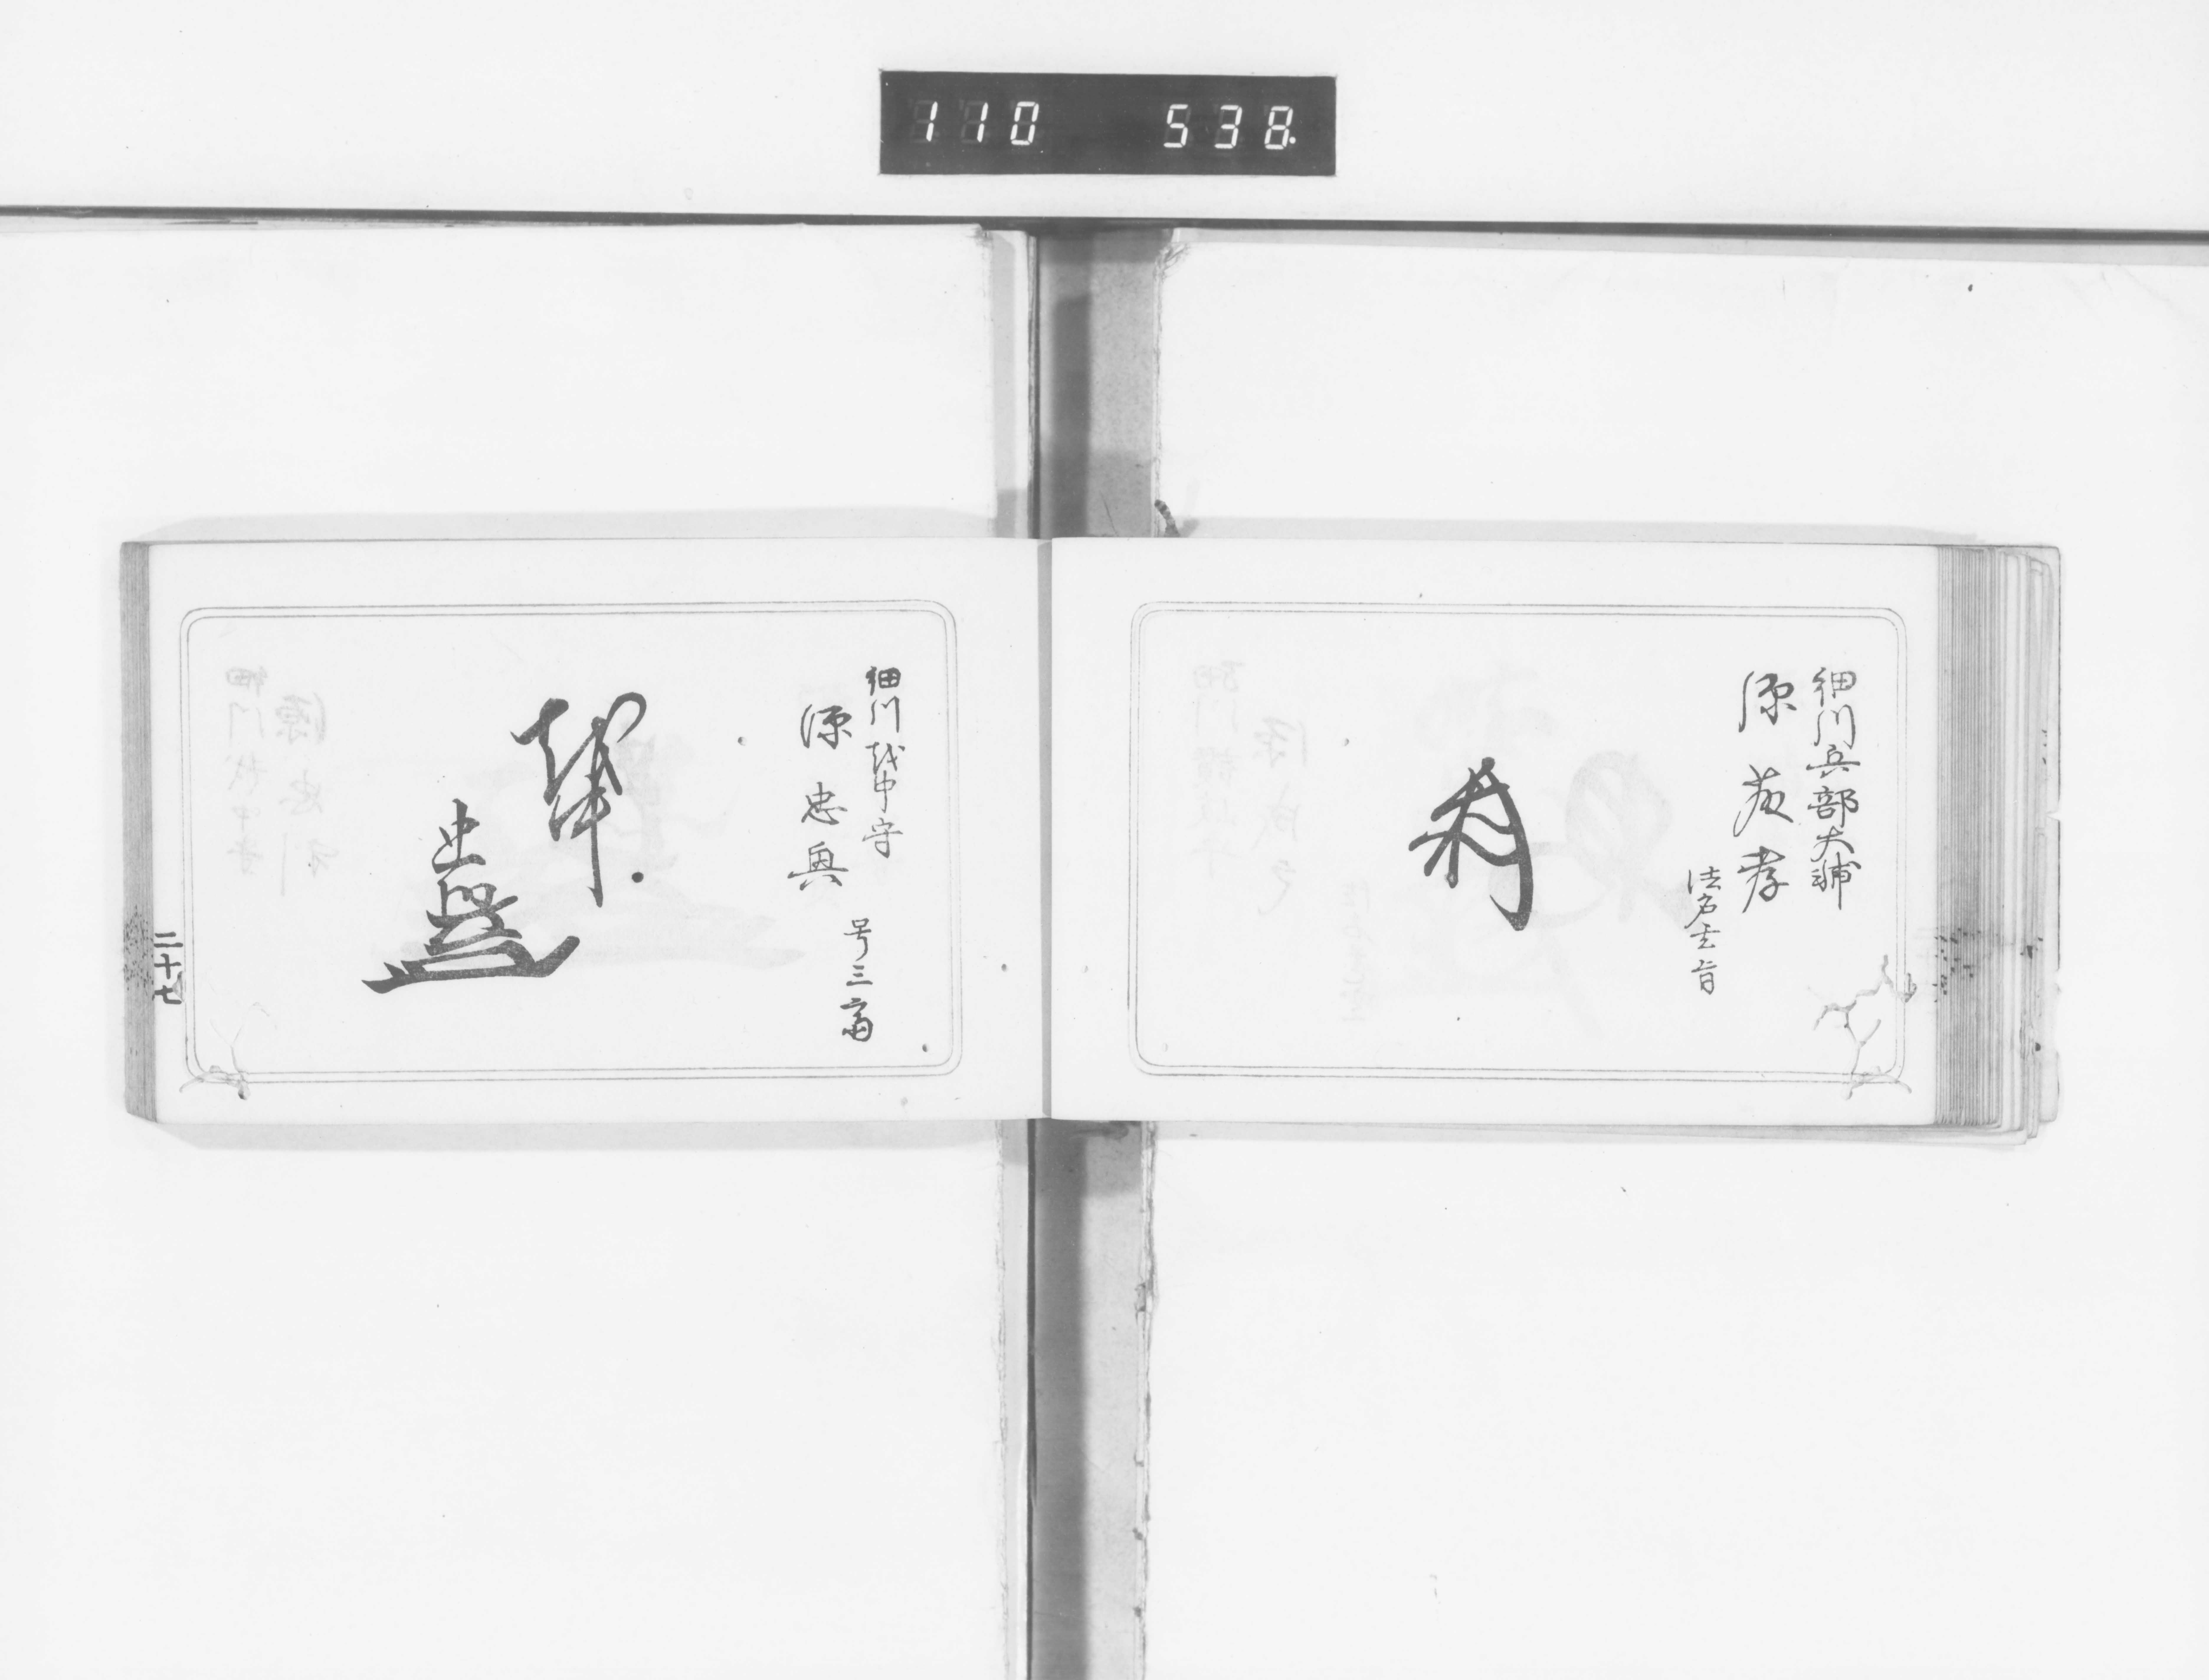 110 538.
細川兵部大輔
源藤孝
法名玄旨
細川越中守
源忠興
号三斎
越中
忠興
二十七